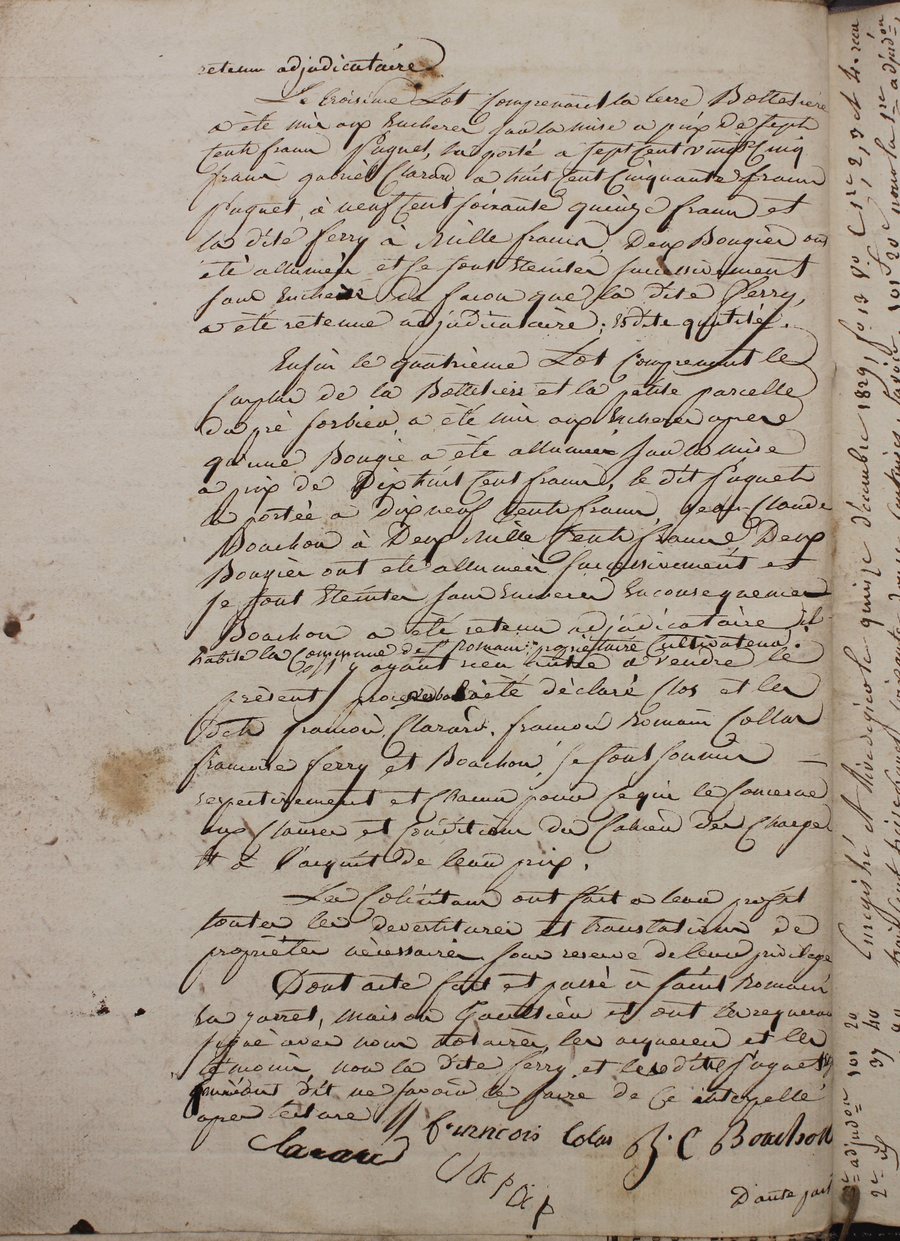 retenu adjudicataire
Le troisième Lot Comprenant la terre Botteliere
a été mis aux Encheres sur la mise a prix de sept
cents francs Paquet, l'a porté a sept cent vingt Cinq
francs gabriel Clarard a huit cent Cinquante francs
Paquet, à neuf cent soixante quinze francs et
la dite ferry à Mille francs, Deux Bougies ont
été allumées et se sont Eteintes successivement
sans Encheres de facon que la dite ferry,
a été retenue adjudicataire, Es dite qualité.
Enfin le quatrième Lot Comprenant le
surplus de la Botteliere et la petite parcelle
du pré sorbier, a été mis aux Encheres apres
qu'une Bougie a été allumée sur la mise
a prix de Dix huit Cent francs, le dit Paquet
la portée a Dix neuf Cents francs, Jean Claude
Bouchon à Deux Mille Cents francs Deux
Bougies ont été allumées successivement et
se sont Eteintes sans Encheres En consequence
Bouchon a été retenu adjudicataire il
habite la Commune de St Romain propriétaire Cultivateur.
n'y ayant rien autre a vendre le
présent procès verbal a été déclaré Clos et les
Dits françois Clarard, françois Romain Collas
francoise ferry et Bouchon, se sont soumis
respectivement et Chacun pour ce qui le Concerne
aux Clauses et Conditions du Cahier des Charges
et à l'acquit de leur prix.
Les Colicitans ont fait a leur profit
toutes les devestitures et translations de
propriétés nécessaires sous reserve de leur privilege
Dont acte fait et passé à saint Romain
En jarret, maison Gaultier et ont les requerans
signé avec nous notaires les acquereurs et les
témoins, non la dite ferry et les dits Paquet
dit ne savoir le faire de Ce interpellé
apres lecture //
francois Colas J. C Bouchon
Clarard
D'autre part
Enregistré A Rivedegier le quinze décembre 1829, fo 12 Vo C 1re, 2, 3 et 4. recu